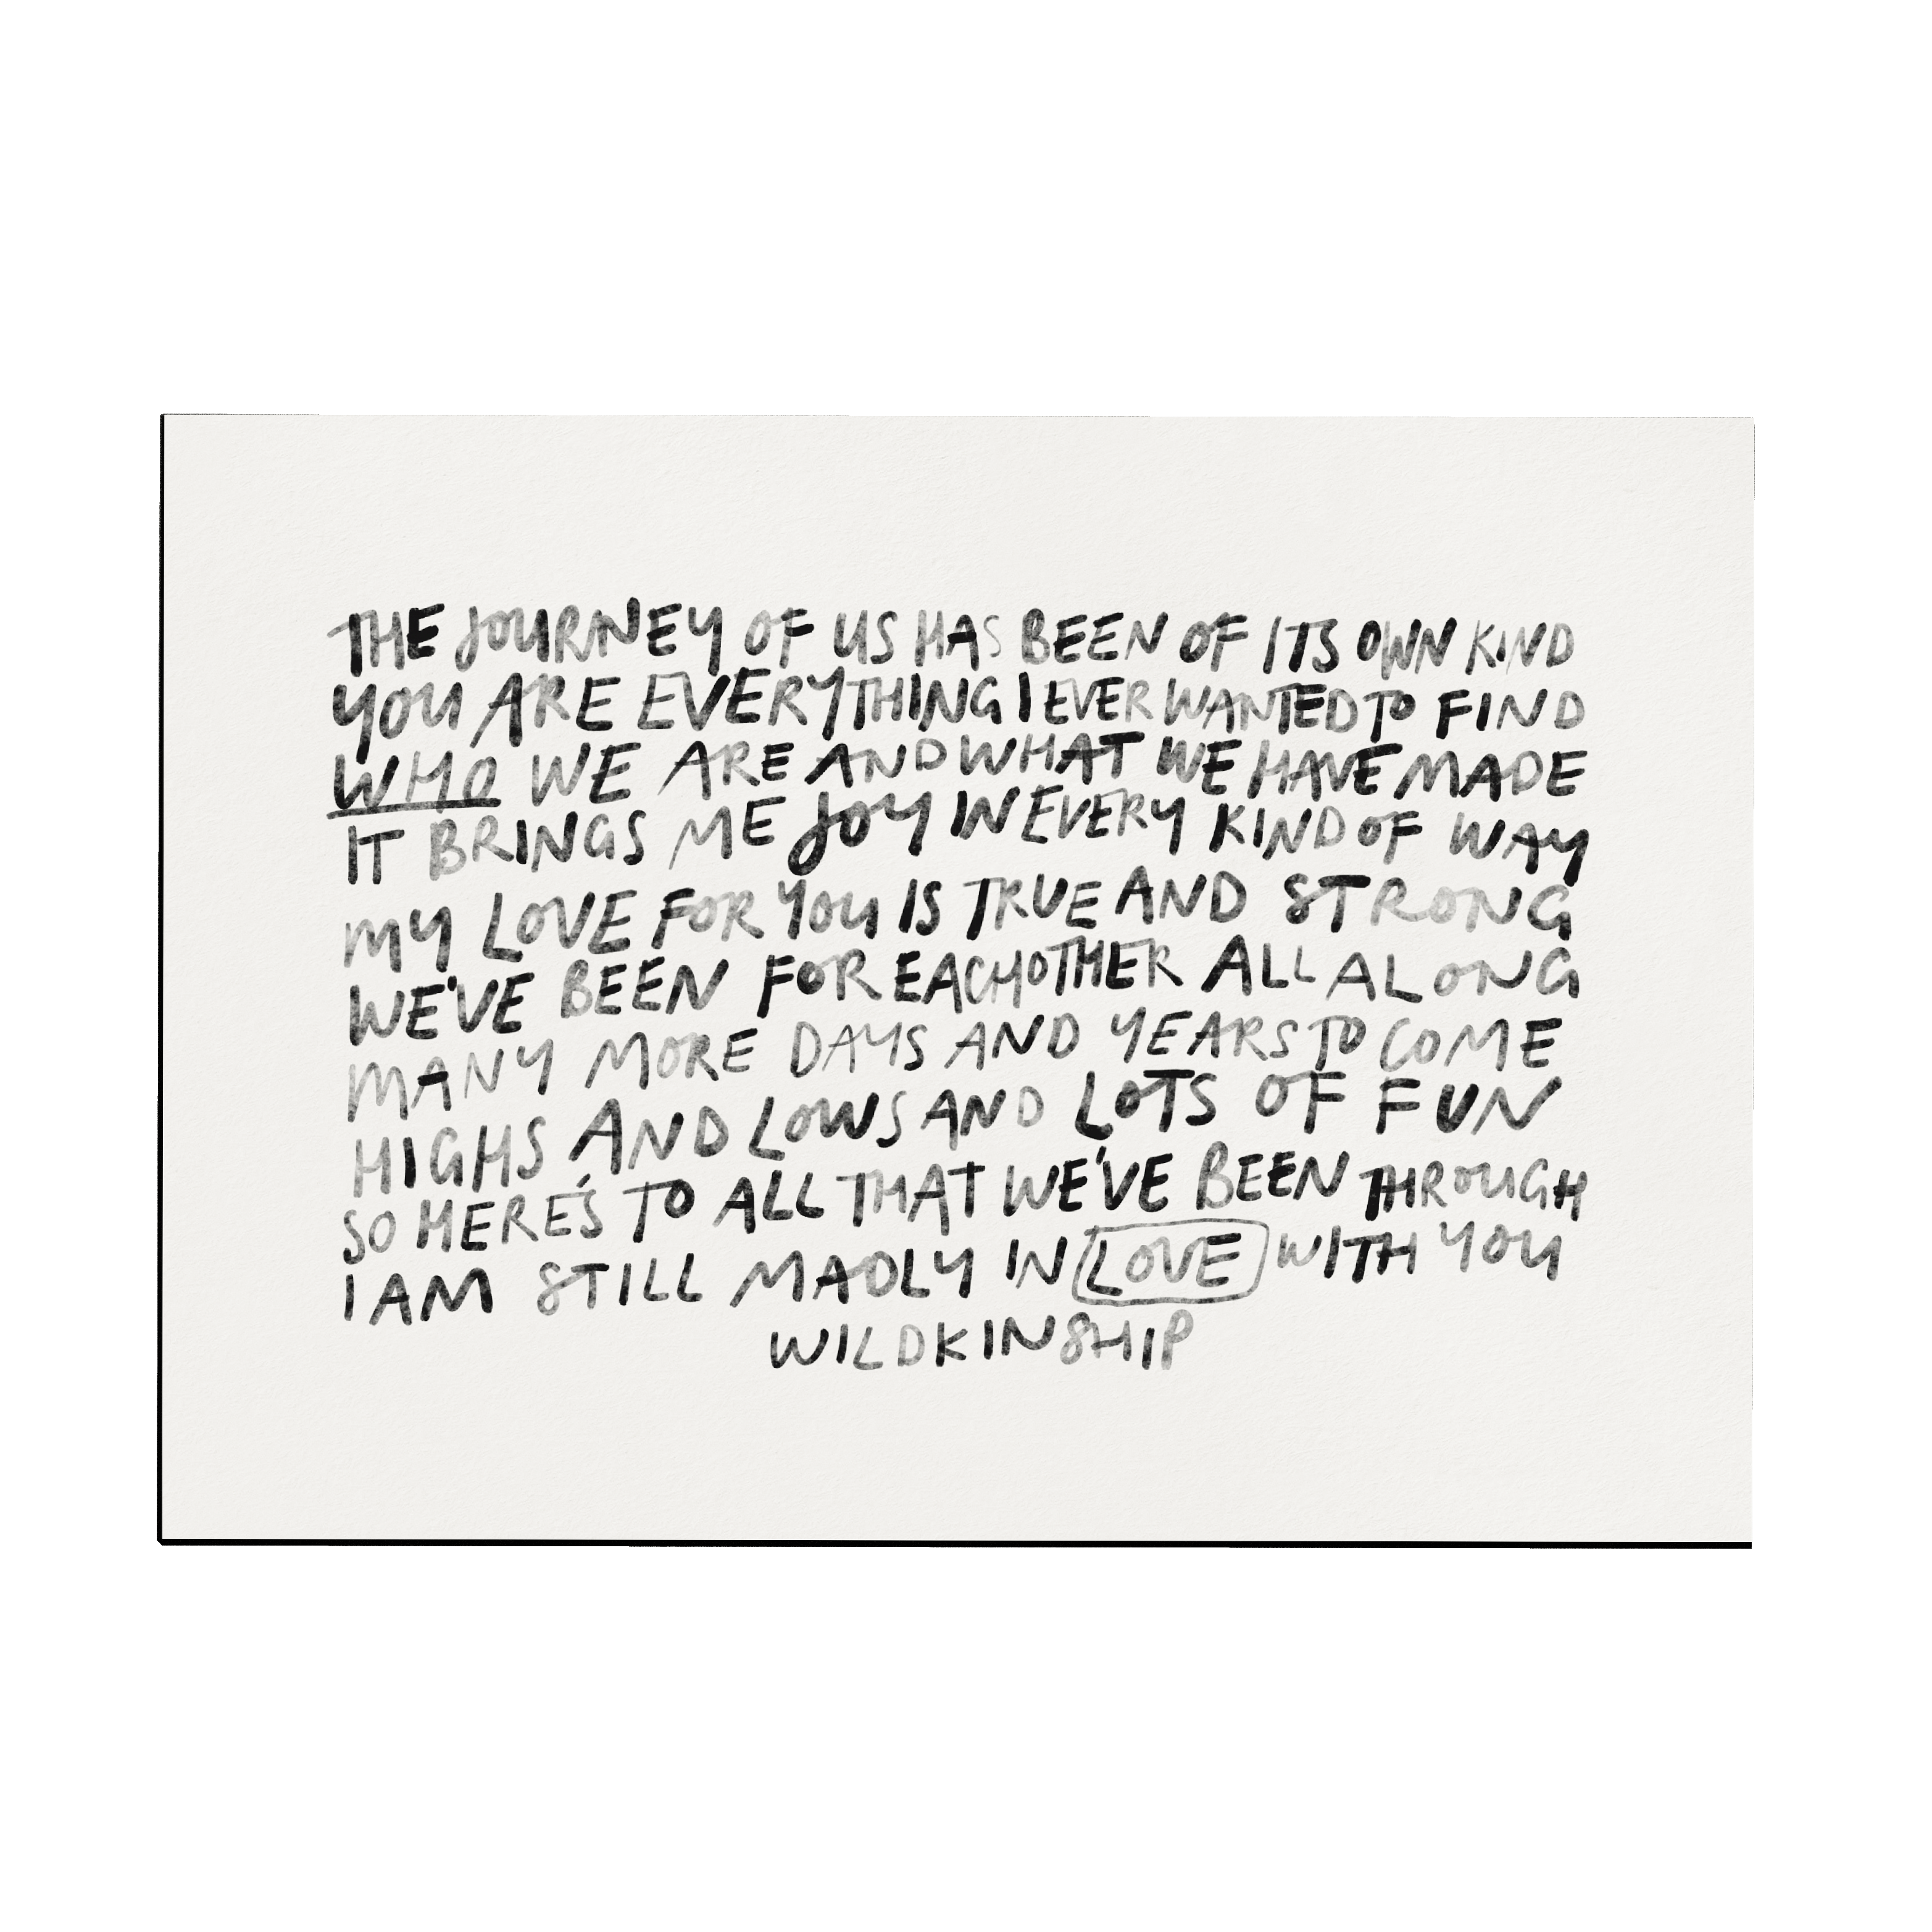 THE JOURNEY OF US HAS BEEN OF ITS OWN KIND
YOU ARE EVERYTHING I EVER WANTED TO FIND
WHO WE ARE AND WHAT WE HAVE MADE
IT BRINGS ME JOY IN EVERY KIND OF WAY
MY LOVE FOR YOU IS TRUE AND STRONG
WE'VE BEEN FOR EACHOTHER ALL ALONG
MANY MORE DAYS AND YEARS TO COME
HIGHS AND LOWS AND LOTS OF FUN
SO HERE'S TO ALL THAT WE'VE BEEN THROUGH
I AM STILL MADLY IN LOVE WITH YOU
WILDKINSHIP